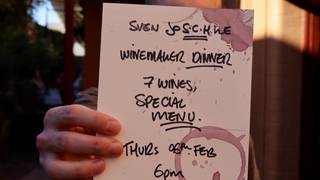 SVEN JOSCHKE
WINEMAKER DINNER
7 WINES,
SPECIAL
MENU.
THURS 06TH FEB
6pm